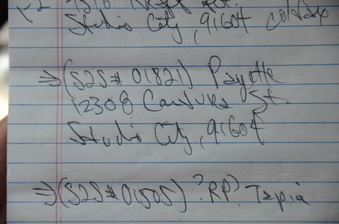 Studio City, 91604 Colfax
⇒(S2S# 01821) Payette
12308 Cantura St.
Studio City, 91604
⇒(S2S# 01505) ?RP? Tapia